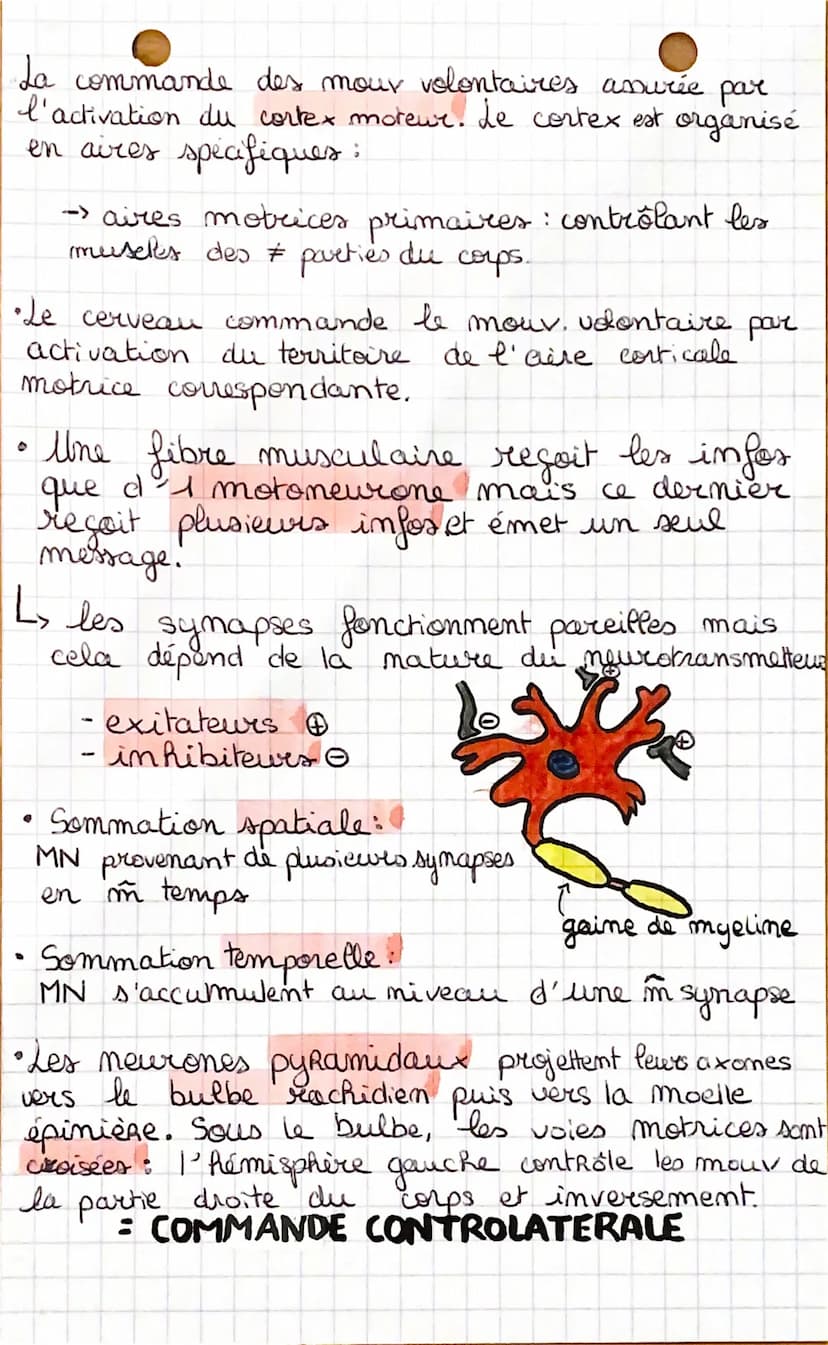 La commande des mouv volontaires assurée par
l'activation du cortex moteur. Le cortex est organisé
en aires spécifiques :
-> aires motrices primaires : contrôlant les
muscles des ≠ parties du corps.
•Le cerveau commande le mouv. volontaire par
activation du territoire de l'aire corticale
motrice correspondante.
• Une fibre musculaire reçoit les infos
que d'1 motoneurone mais ce dernier
reçoit plusieurs infos et émet un seul
message.
↳ les synapses fonctionnent pareilles mais
cela dépend de la nature du neurotransmetteur
- exitateurs ⊕
- inhibiteurs ⊖
⊕
⊖
⊕
• Sommation spatiale :
MN provenant de plusieurs synapses
en m̃ temps
gaine de myeline
• Sommation temporelle :
MN s'accumulent au niveau d'une m̃ synapse
•Les neurones pyRamidaux projettent leurs axones
vers le bulbe rachidien puis vers la moelle
épinière. Sous le bulbe, les voies motrices sont
croisées : l'hémisphère gauche contrôle les mouv de
la partie droite du corps et inversement.
= COMMANDE CONTROLATERALE